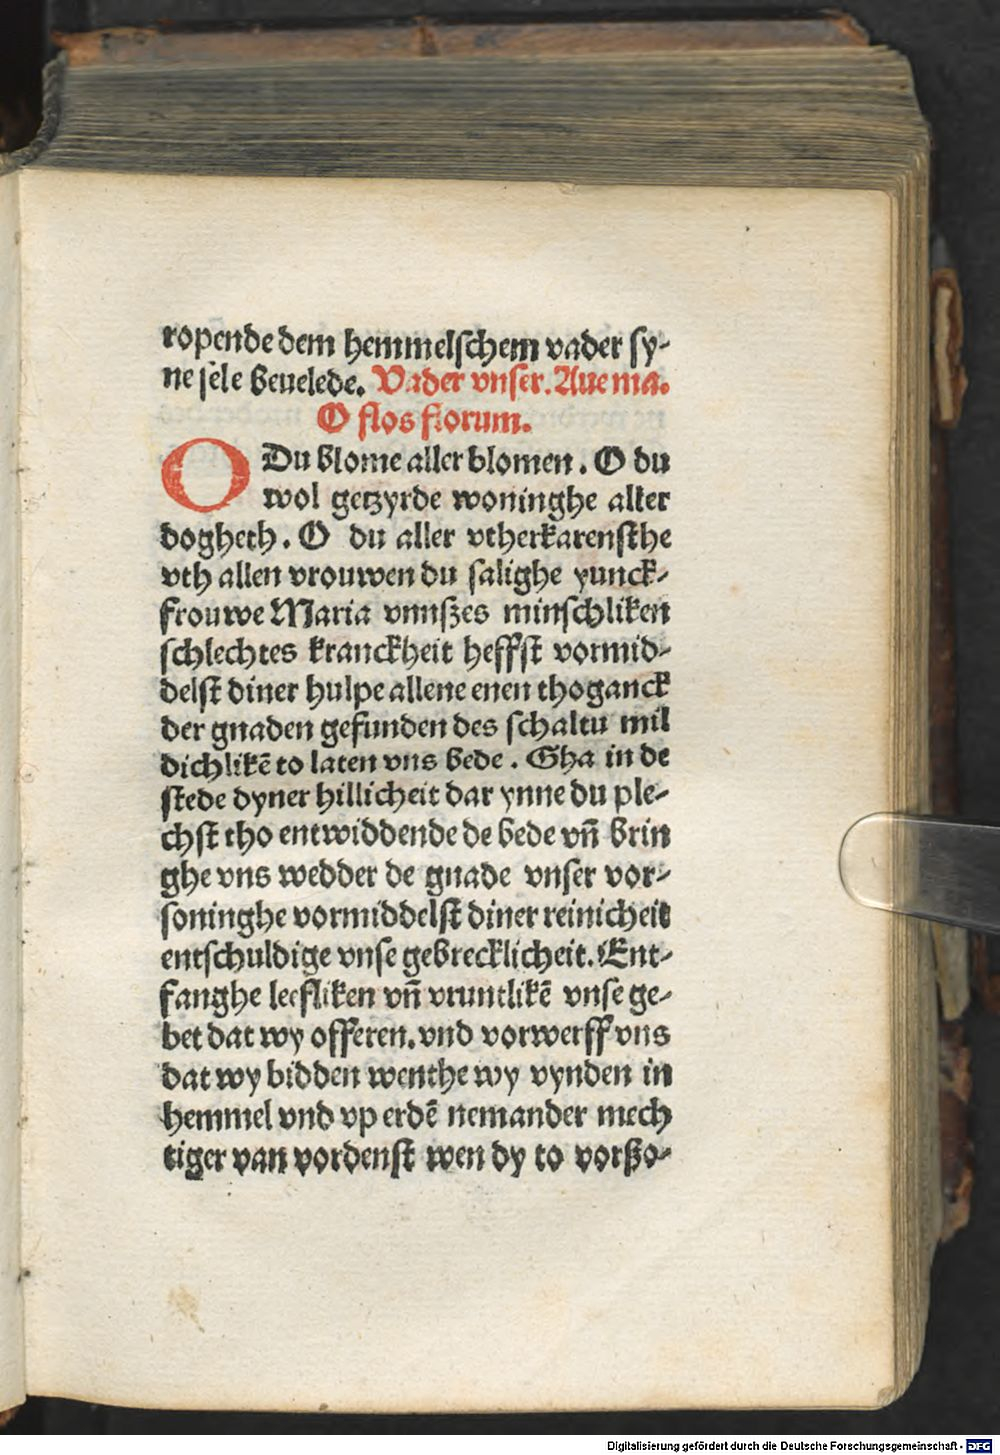 ropende dem hemmelschem vader sy-
ne sele beuelede. Vader vnser. Aue ma.
O flos florum.
O Du blome aller blomen. O du
wol getzyrde woninghe aller
dogheth. O du aller vtherkarensthe
vth allen vrouwen du salighe yunck-
frouwe Maria vnnszes minschliken
schlechtes kranckheit heffst vormid-
delst diner hulpe allene enen thoganck
der gnaden gefunden des schaltu mil
dichlikē to laten vns bede. Gha in de
stede dyner hillicheit dar ynne du ple-
chst tho entwiddende de bede vn̄ brin
ghe vns wedder de gnade vnser vor-
soninghe vormiddelst diner reinicheit
entschuldige vnse gebrecklicheit. Ent-
fanghe leefliken vn̄ vruntlikē vnse ge-
bet dat wy offeren. vnd vorwerff vns
dat wy bidden wenthe wy vynden in
hemmel vnd vp erdē nemander mech
tiger van vordenst wen dy to vorszo-
Digitalisierung gefördert durch die Deutsche Forschungsgemeinschaft - DFG